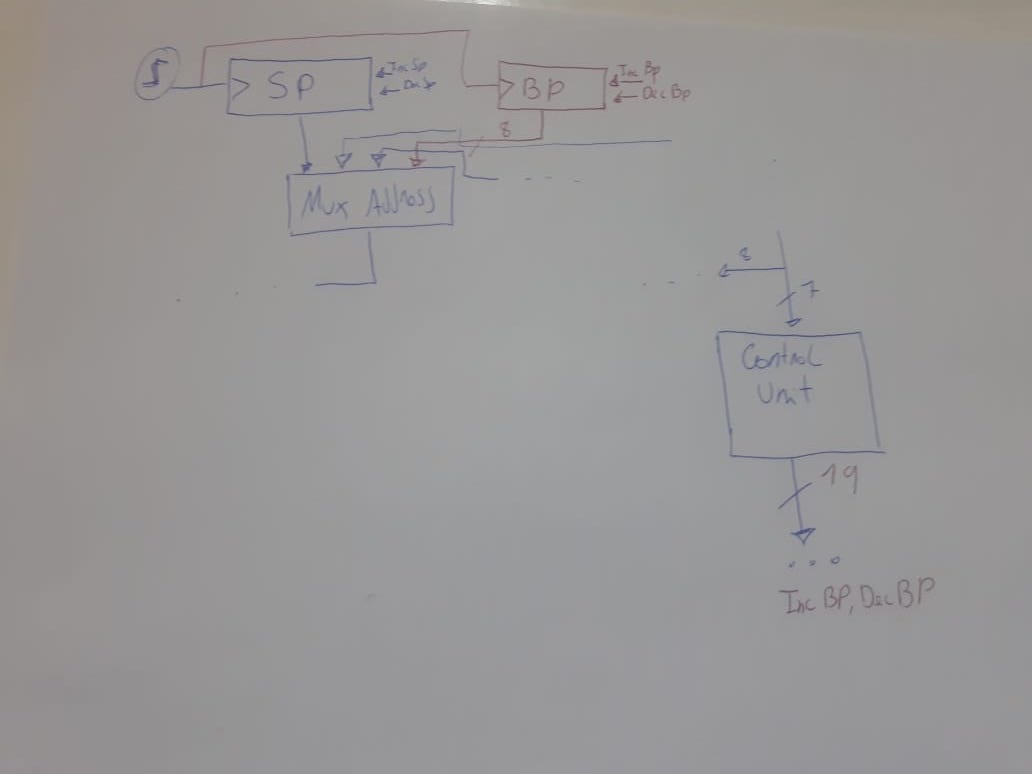 SP
Inc Sp
Dec Sp
BP
Inc Bp
Dec Bp
8
Mux Address
8
7
Control
Unit
19
Inc BP, Dec BP